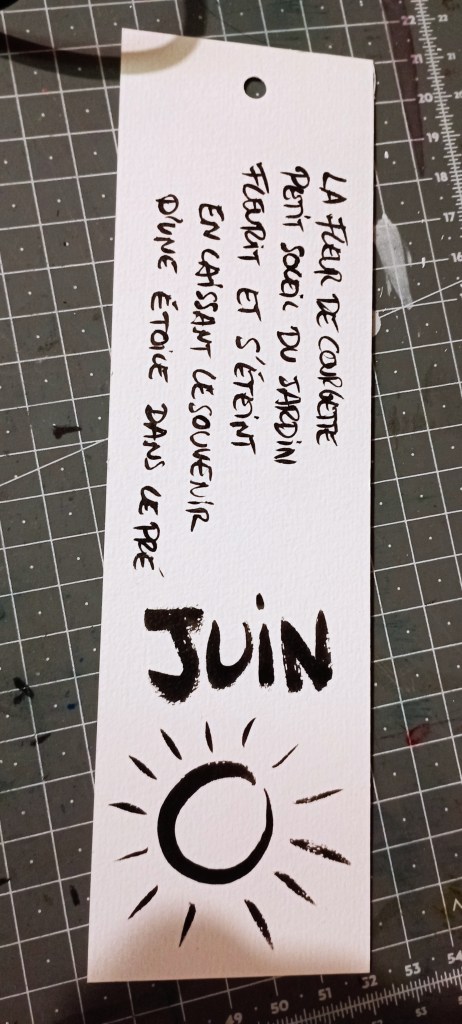 LA FLEUR DE COURGETTE
PETIT SOLEIL DU JARDIN
FLEURIT ET S'ÉTEINT
EN LAISSANT LE SOUVENIR
D'UNE ÉTOILE DANS LE PRÉ
JUIN
22
21
20
19
18
17
16
49
50
51
52
53
54